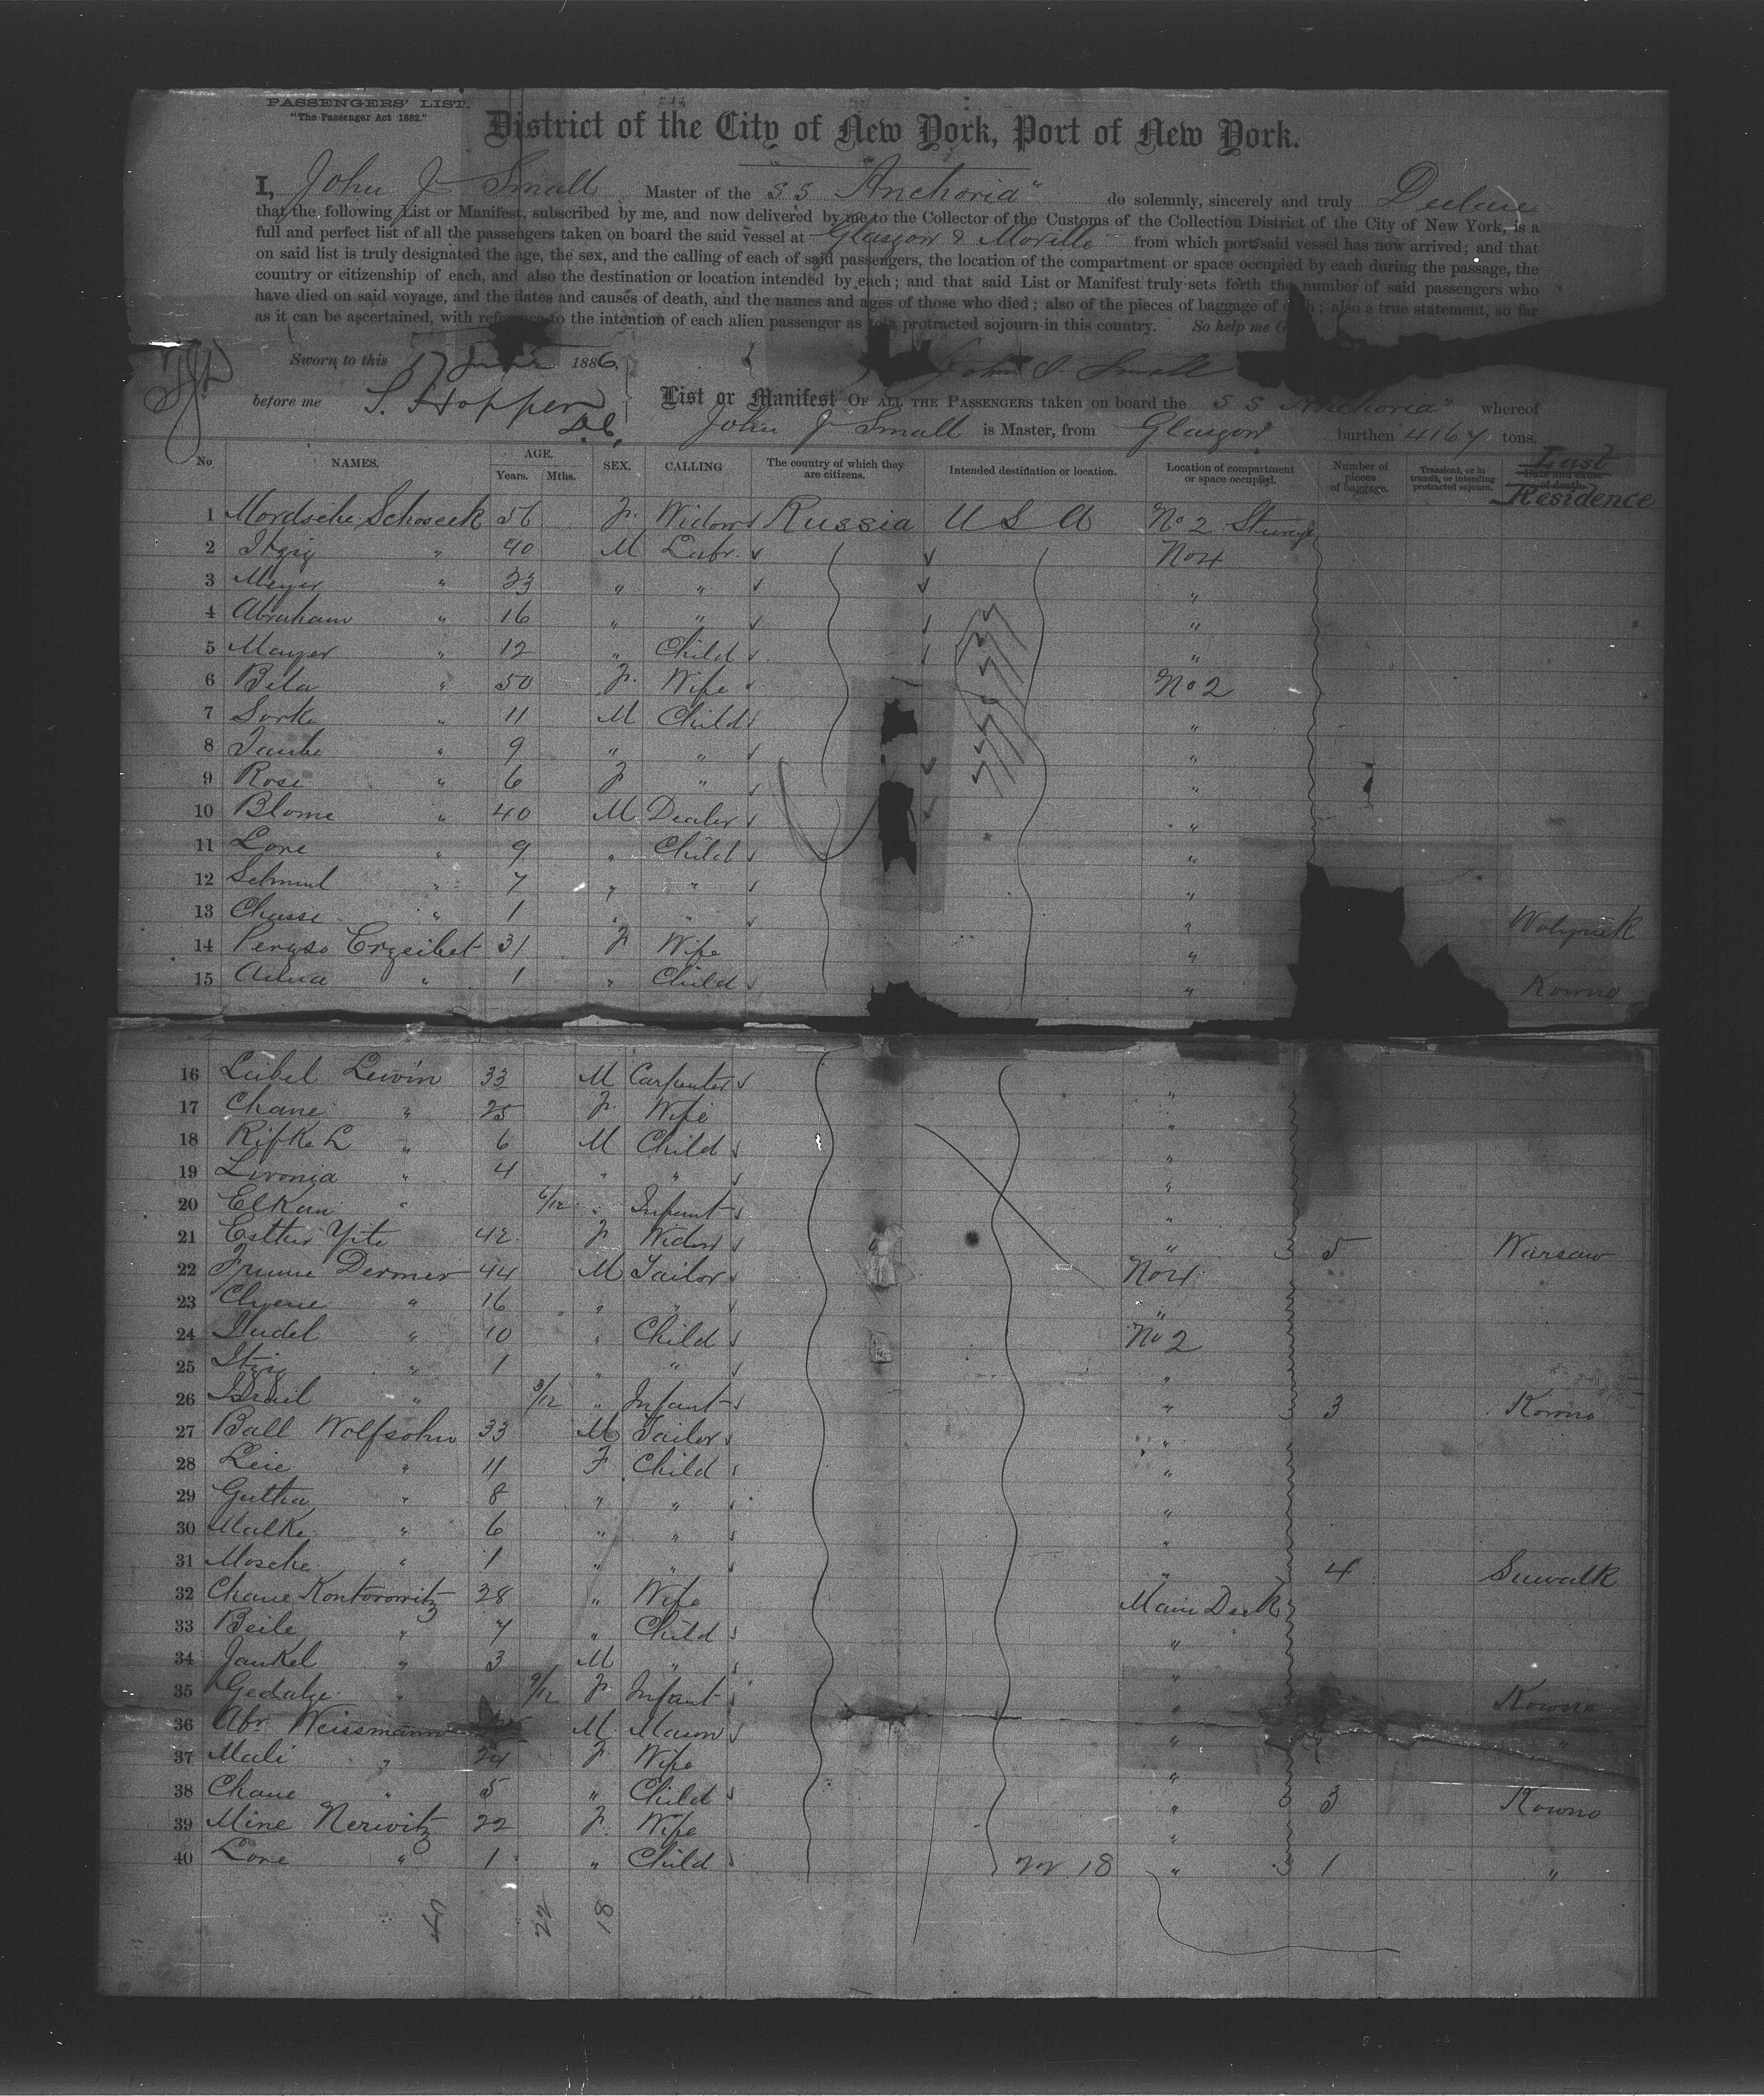 PASSENGERS' LIST.
"The Passenger Act 1882."
District of the City of New York, Port of New York.
I, John J Small Master of the S S Anchoria" do solemnly, sincerely and truly Declare
that the following List or Manifest, subscribed by me, and now delivered by me to the Collector of the Customs of the Collection District of the City of New York, is a
full and perfect list of all the passengers taken on board the said vessel at Glasgow & Moville from which port said vessel has now arrived; and that
on said list is truly designated the age, the sex, and the calling of each of said passengers, the location of the compartment or space occupied by each during the passage, the
country or citizenship of each, and also the destination or location intended by each; and that said List or Manifest truly sets forth the number of said passengers who
have died on said voyage, and the dates and causes of death, and the names and ages of those who died; also of the pieces of baggage of each; also a true statement, so far
as it can be ascertained, with reference to the intention of each alien passenger as to a protracted sojourn in this country. So help me G
Sworn to this 7 June 1886 John J Small
before me S. Hopper D.C. List or Manifest OF ALL THE PASSENGERS taken on board the S S Anchoria" whereof
John J Small is Master, from Glasgow burthen 4167 tons.
No NAMES. AGE. Years. Mths. SEX. CALLING The country of which they are citizens. Intended destination or location. Location of compartment or space occupied. Number of pieces of baggage. Transient, or in transit, or intending protracted sojourn. Date and cause of death. Last Residence
1 Mordsche Schoseck 56 F. Widow Russia U S A No 2 Steerage
2 Itzig " 40 M Labr. No 4
3 Meyer " 23 " " "
4 Abraham " 16 " " "
5 Mayer " 12 " Child "
6 Bela " 50 F. Wife No 2
7 Sorke " 11 M Child "
8 Taube " 9 " " "
9 Rose " 6 F " "
10 Blome " 40 M Dealer "
11 Lore " 9 " Child "
12 Schmul " 7 " " "
13 Chasse " 1 " " "
14 31 F Wife "
15 " 1 " Child " Kowno
16 Leibel Lewin 33 M Carpenter "
17 Chane " 25 F. Wife "
18 Rifke L " 6 M Child "
19 Livonia " 4 " " "
20 Elkan " 6/12 " Infant "
21 Esther Yite 42 F Widow " 5 Warsaw
22 Dermer 44 M Tailor No 4
23 " 16 " " "
24 Judel " 10 " Child No 2
25 Itzig " 1 " " "
26 Israil " 3/12 " Infant " 3 Kowno
27 Ball Wolfsohn 33 M Tailor "
28 Leie " 11 F Child "
29 Gutha " 8 " " "
30 Malke " 6 " " "
31 Mosche " 1 " " " 4 Suwalk
32 Chane Kontorowitz 28 " Wife Main Deck
33 Beile " 7 " Child "
34 Jankel " 3 M " "
35 Gedalye " 9/12 F Infant " Kowno
36 Abr Weissmann M Mason "
37 Mali " 24 F Wife "
38 Chane " 5 " Child " 3 Kowno
39 Mine Nerwitz 22 F. Wife "
40 Lore " 1 " Child 22 18 " 1 "
40 22 18